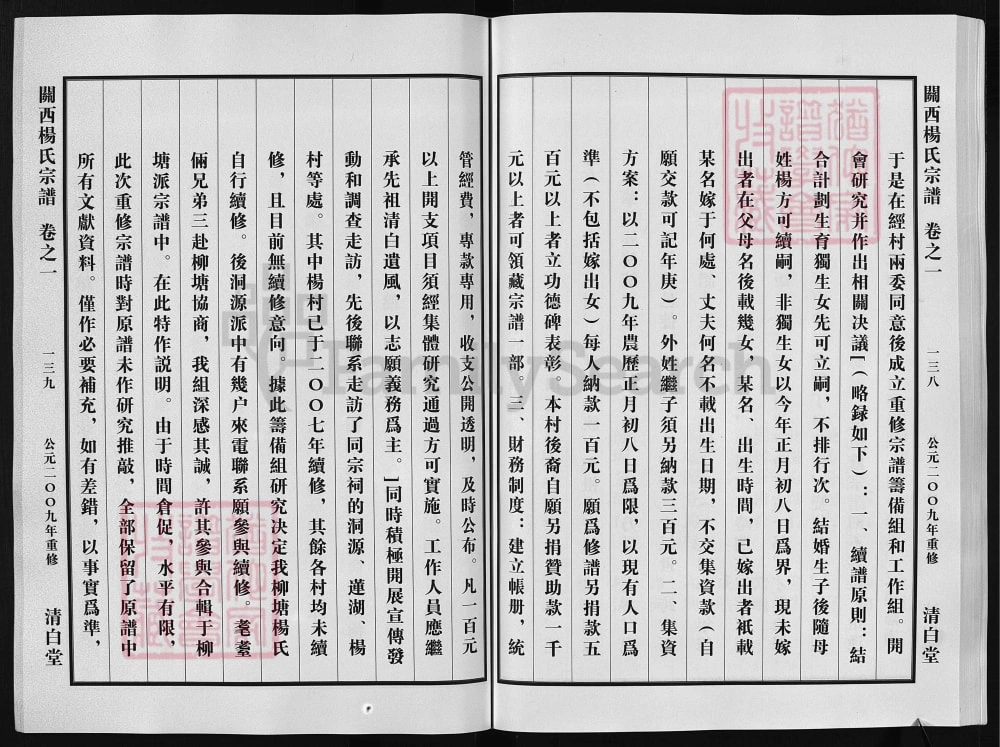 關西楊氏宗譜 卷之一 一三八 公元二〇〇九年重修 清白堂
于是在經村兩委同意後成立重修宗譜籌備組和工作組。開
會研究并作出相關决議[（略録如下）：一、續譜原則：結
合計劃生育獨生女先可立嗣，不排行次。結婚生子後隨母
姓楊方可續嗣，非獨生女以今年正月初八日爲界，現未嫁
出者在父母名後載幾女，某名、出生時間，已嫁出者衹載
某名嫁于何處、丈夫何名不載出生日期，不交集資款（自
願交款可記年庚）。外姓繼子須另納款三百元。二、集資
方案：以二〇〇九年農歷正月初八日爲限，以現有人口爲
準（不包括嫁出女）每人納款一百元。願爲修譜另捐款五
百元以上者立功德碑表彰，本村後裔自願另捐贊助款一千
元以上者可領藏宗譜一部。三、財務制度：建立帳册，統
管經費，專款專用，收支公開透明，及時公布。凡一百元
以上開支項目須經集體研究通過方可實施。工作人員應繼
承先祖清白遺風，以志願義務爲主。]同時積極開展宣傳發
動和調查走訪，先後聯系走訪了同宗祠的洞源、蓮湖、楊
村等處。其中楊村已于二〇〇七年續修，其餘各村均未續
修，且目前無續修意向。據此籌備組研究决定我柳塘楊氏
自行續修。後洞源派中有幾户來電聯系願參與續修。耄耋
倆兄弟三赴柳塘協商，我組深感其誠，許其參與合輯于柳
塘派宗譜中。在此特作説明。由于時間倉促，水平有限，
此次重修宗譜時對原譜未作研究推敲，全部保留了原譜中
所有文獻資料。僅作必要補充，如有差錯，以事實爲準，
關西楊氏宗譜 卷之一 一三九 公元二〇〇九年重修 清白堂
FamilySearch